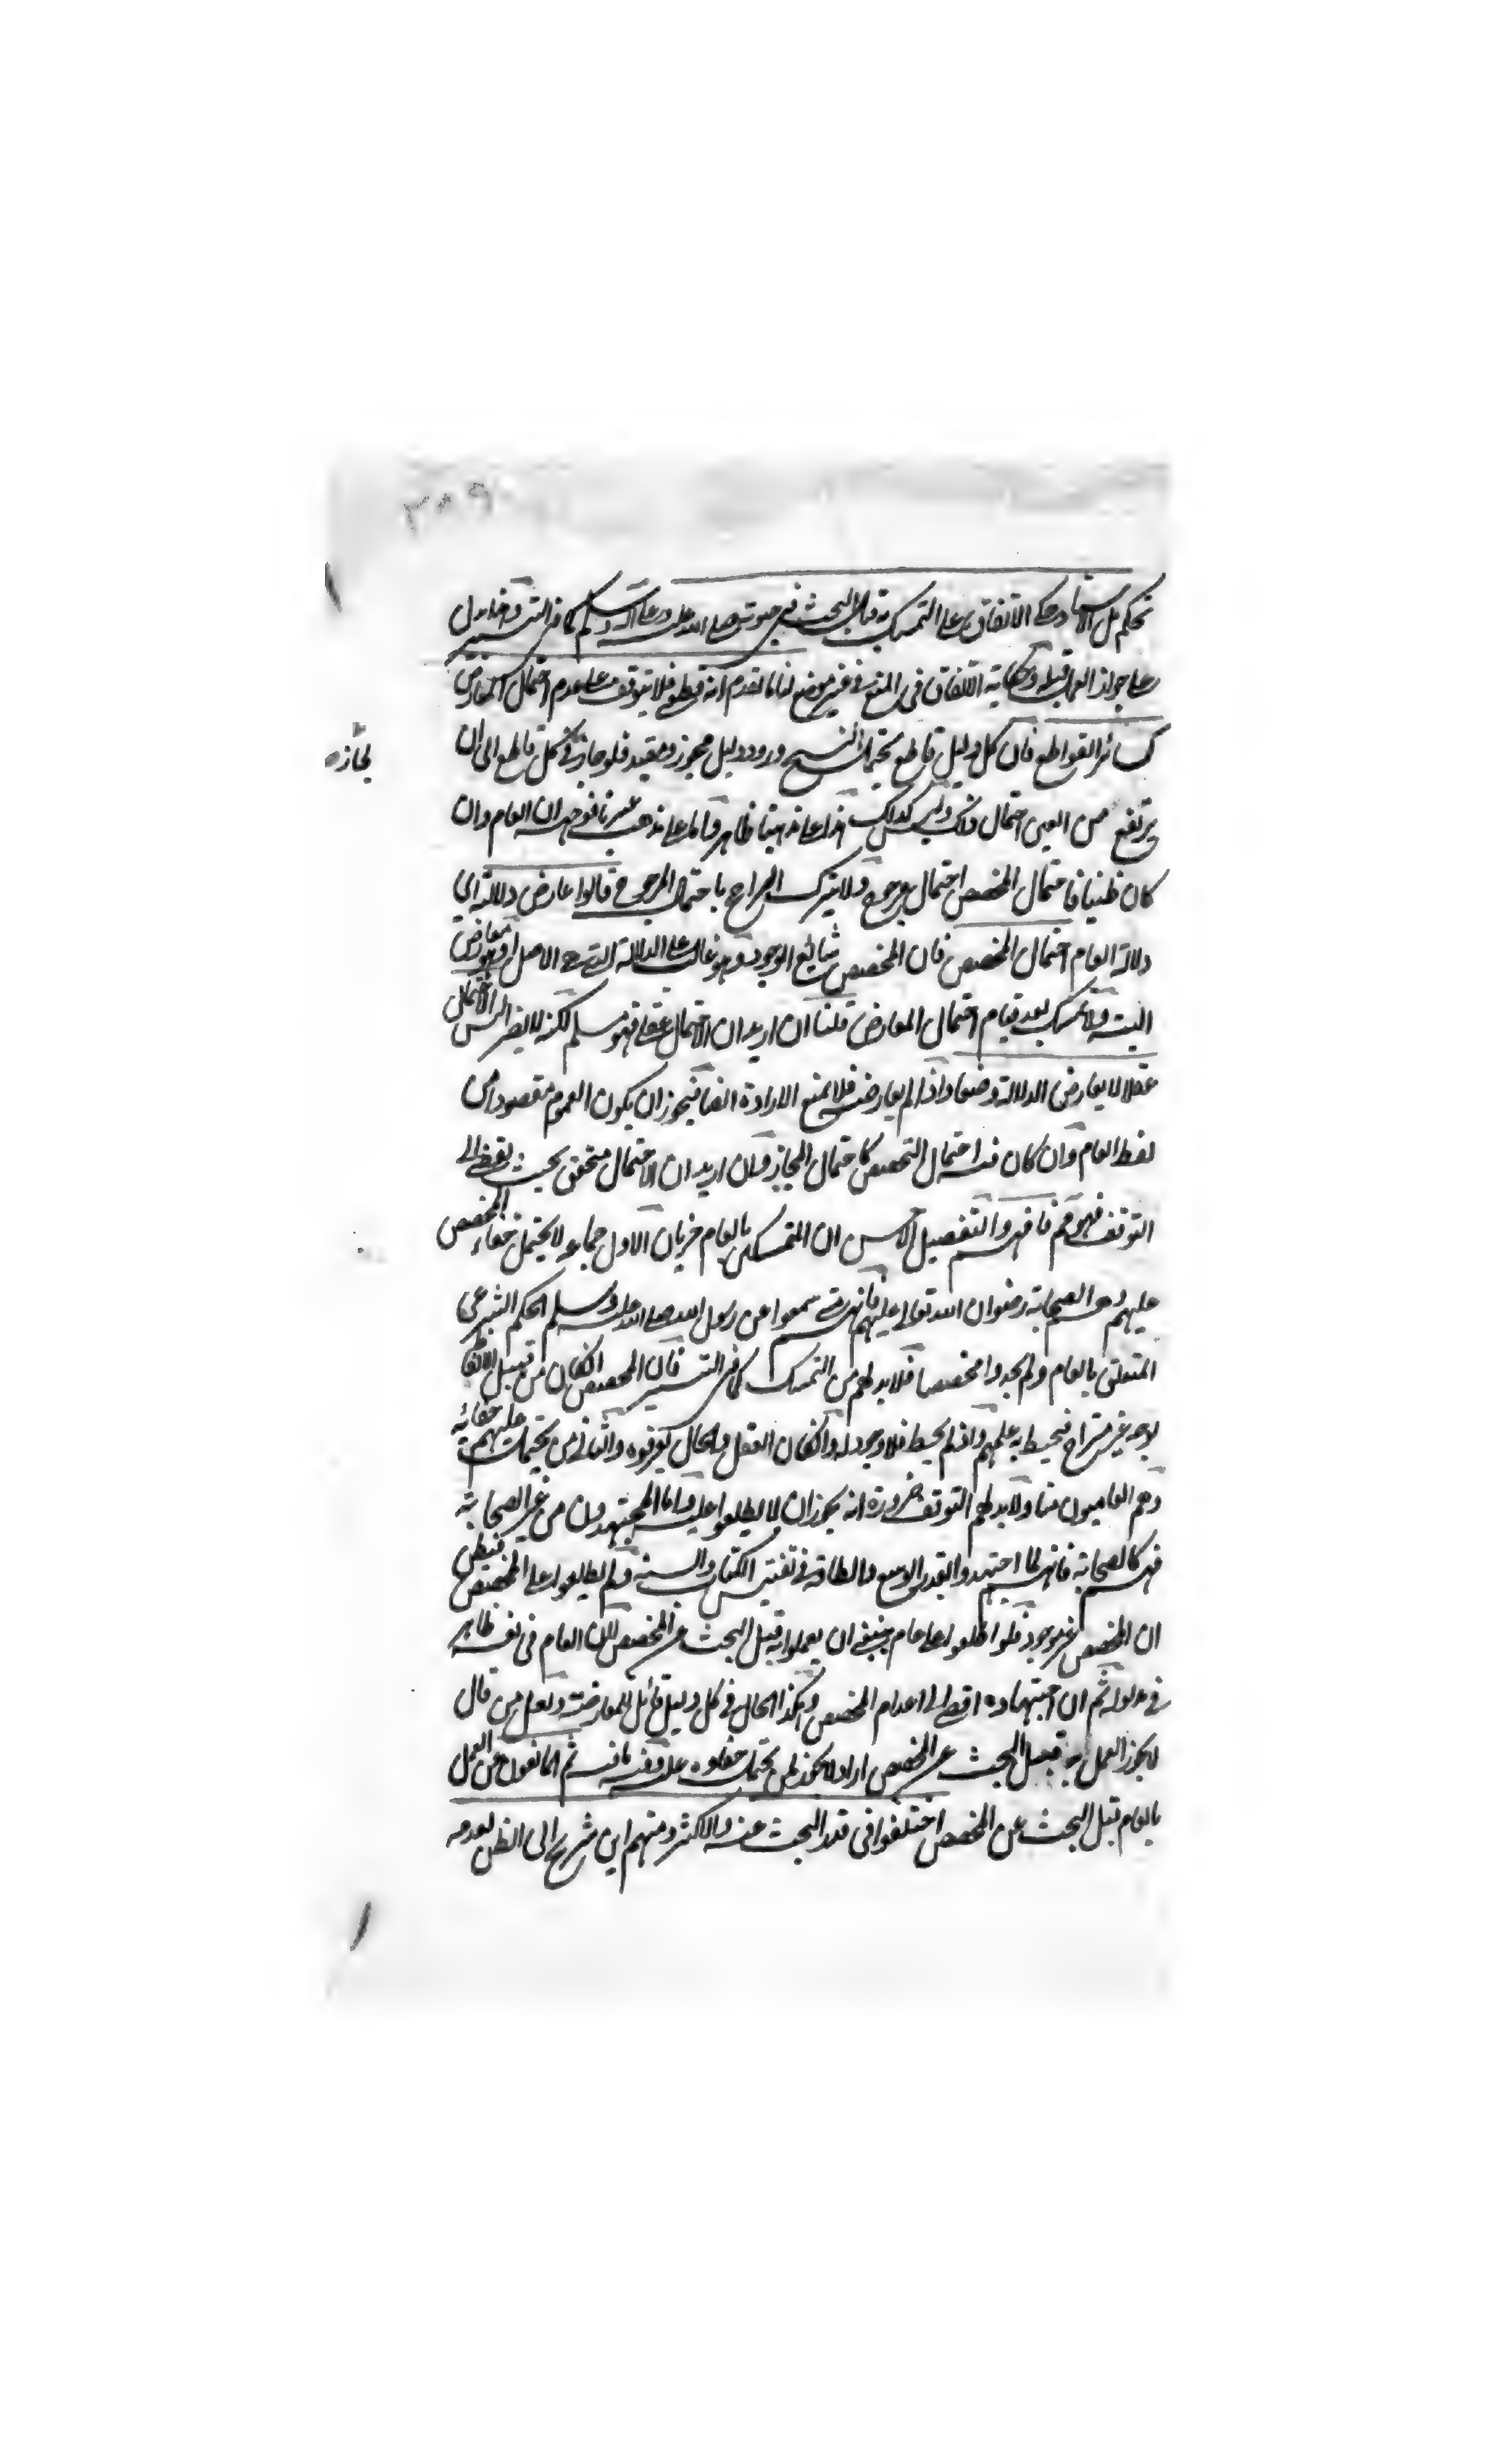 ٣٨٩
وحكى الاتفاق على التمسك به قبل البحث في حيوته صلى الله عليه وعلى آله وسلم كما في التيسير
على جواز العمل قبله وحكاية الاتفاق في المنع في غير موضع لنا ما تقدم انه قطعي فلا يتوقف على عدم احتمال المعارض
كسائر القواطع فان كل دليل قاطع يحتمل النسخ وورود دليل مجوز ومقيد فلو جاز في كل قاطع الى ان
يرتفع من العين احتمال ذلك وليس كذلك هذا على مذهبنا ظاهر واما على مذهب غيرنا فوجهه ان العام وان
كان ظنيا فاحتمال المخصص احتمال مرجوح ولا يترك الراجح باحتمال المرجوح قالوا عارض دلالته اي
دلالة العام احتمال المخصص فان المخصص شائع الوجود وهو غالب على الدلالة التي هي الاصل او معارض
البتة ولا تمسك بعد قيام احتمال المعارض قلنا ان اريد ان الاحتمال عقلي فهو مسلم لكنه لا يضر اذ الاحتمال
عقلا لا يعارض الدلالة وضعا واذا لم يعارض فلا يمنع الارادة ايضا فيجوز ان يكون العموم مقصودا من
لفظ العام وان كان فيه احتمال التخصيص كاحتمال المجاز وان اريد ان الاحتمال متحقق بحيث يفضي الى
التوقف فهو مم فافهم والتفصيل الاحسن ان المتمسكين بالعام حزبان الاول جماعة لا يحتمل خفاء المخصص
عليهم وهم الصحابة رضوان الله تعالى عليهم فانهم متى سمعوا عن رسول الله صلى الله عليه وسلم الحكم الشرعي
المتعلق بالعام ولم يجدوا مخصصا فلا بد لهم من التمسك كما في التيسير فان المخصص ان كان من قبيل الالفاظ
بوجه غير متراخ فيحيط به علمهم واذ لم يحيط فلا وجود له وان كان العقل والحال يعرفوه والثاني من يحتمل عليهم خفائه
وهم العاميون منا ولا بد لهم التوقف ضرورة انه يجوز ان لا يطلعوا عليه واما المجتهدون من غير الصحابة
فهم كالصحابة فانهم لما اجتهدوا بقدر الوسع والطاقة في تفتيش الكتاب والسنة ولم يطلعوا على المخصص فيظن
ان المخصص غير موجود فلو اطلعوا على عام ينبغي ان يعملوا به قبل البحث عن المخصص لان العام في نفسه ظاهر
في مدلوله ثم ان اجتهاده افضى الى اعدام المخصص وهكذا الحال في كل دليل قابل للمعارضة ولعل من قال
لا يجوز العمل به قبل البحث عن المخصص اراد لا يجوز لمن يحتمل خفاؤه عليه فافهم ثم المانعون عن العمل
بالعام قبل البحث عن المخصص اختلفوا في قدر البحث عنه والاكثر ومنهم ابن شريح الى الظن بعدمه